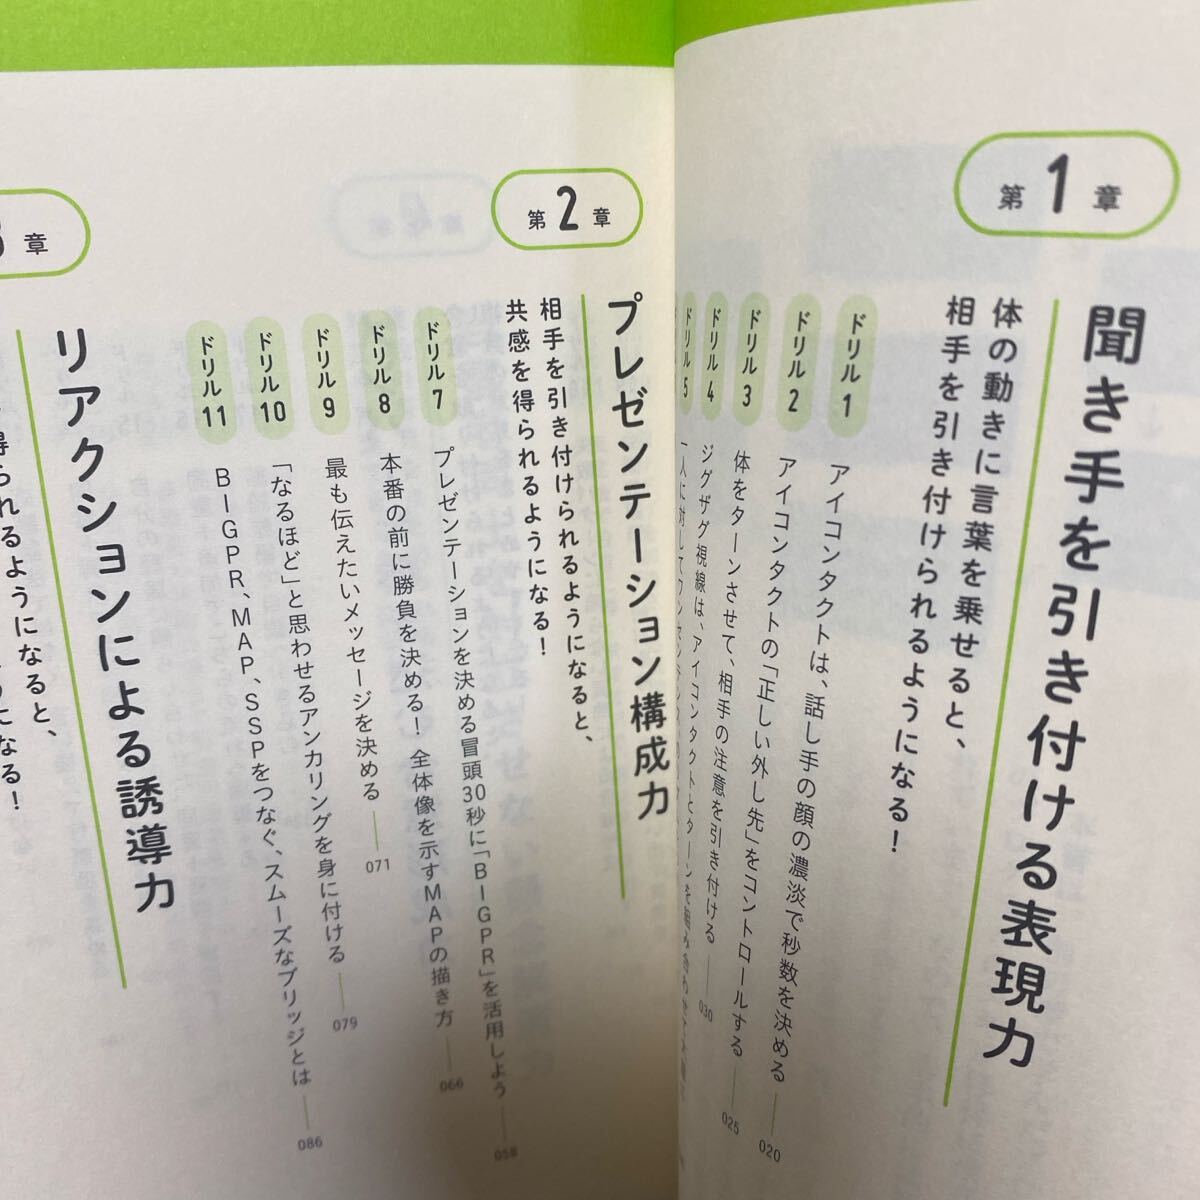 第1章
聞き手を引き付ける表現力
体の動きに言葉を乗せると、
相手を引き付けられるようになる!
ドリル1
アイコンタクトは、話し手の顔の濃淡で秒数を決める 020
ドリル2
アイコンタクトの「正しい外し先」をコントロールする 025
ドリル3
体をターンさせて、相手の注意を引き付ける 030
ドリル4
ジグザグ視線は、アイコンタクトとターンを組み合わせて
ドリル5
一人に対してワン
第2章
プレゼンテーション構成力
相手を引き付けられるようになると、
共感を得られるようになる!
ドリル7
プレゼンテーションを決める冒頭30秒に「BIGPR」を活用しよう 058
ドリル8
本番の前に勝負を決める! 全体像を示すMAPの描き方 066
ドリル9
最も伝えたいメッセージを決める 071
ドリル10
「なるほど」と思わせるアンカリングを身に付ける 079
ドリル11
BIGPR、MAP、SSPをつなぐ、スムーズなブリッジとは 086
章
リアクションによる誘導力
得られるようになると、
になる!